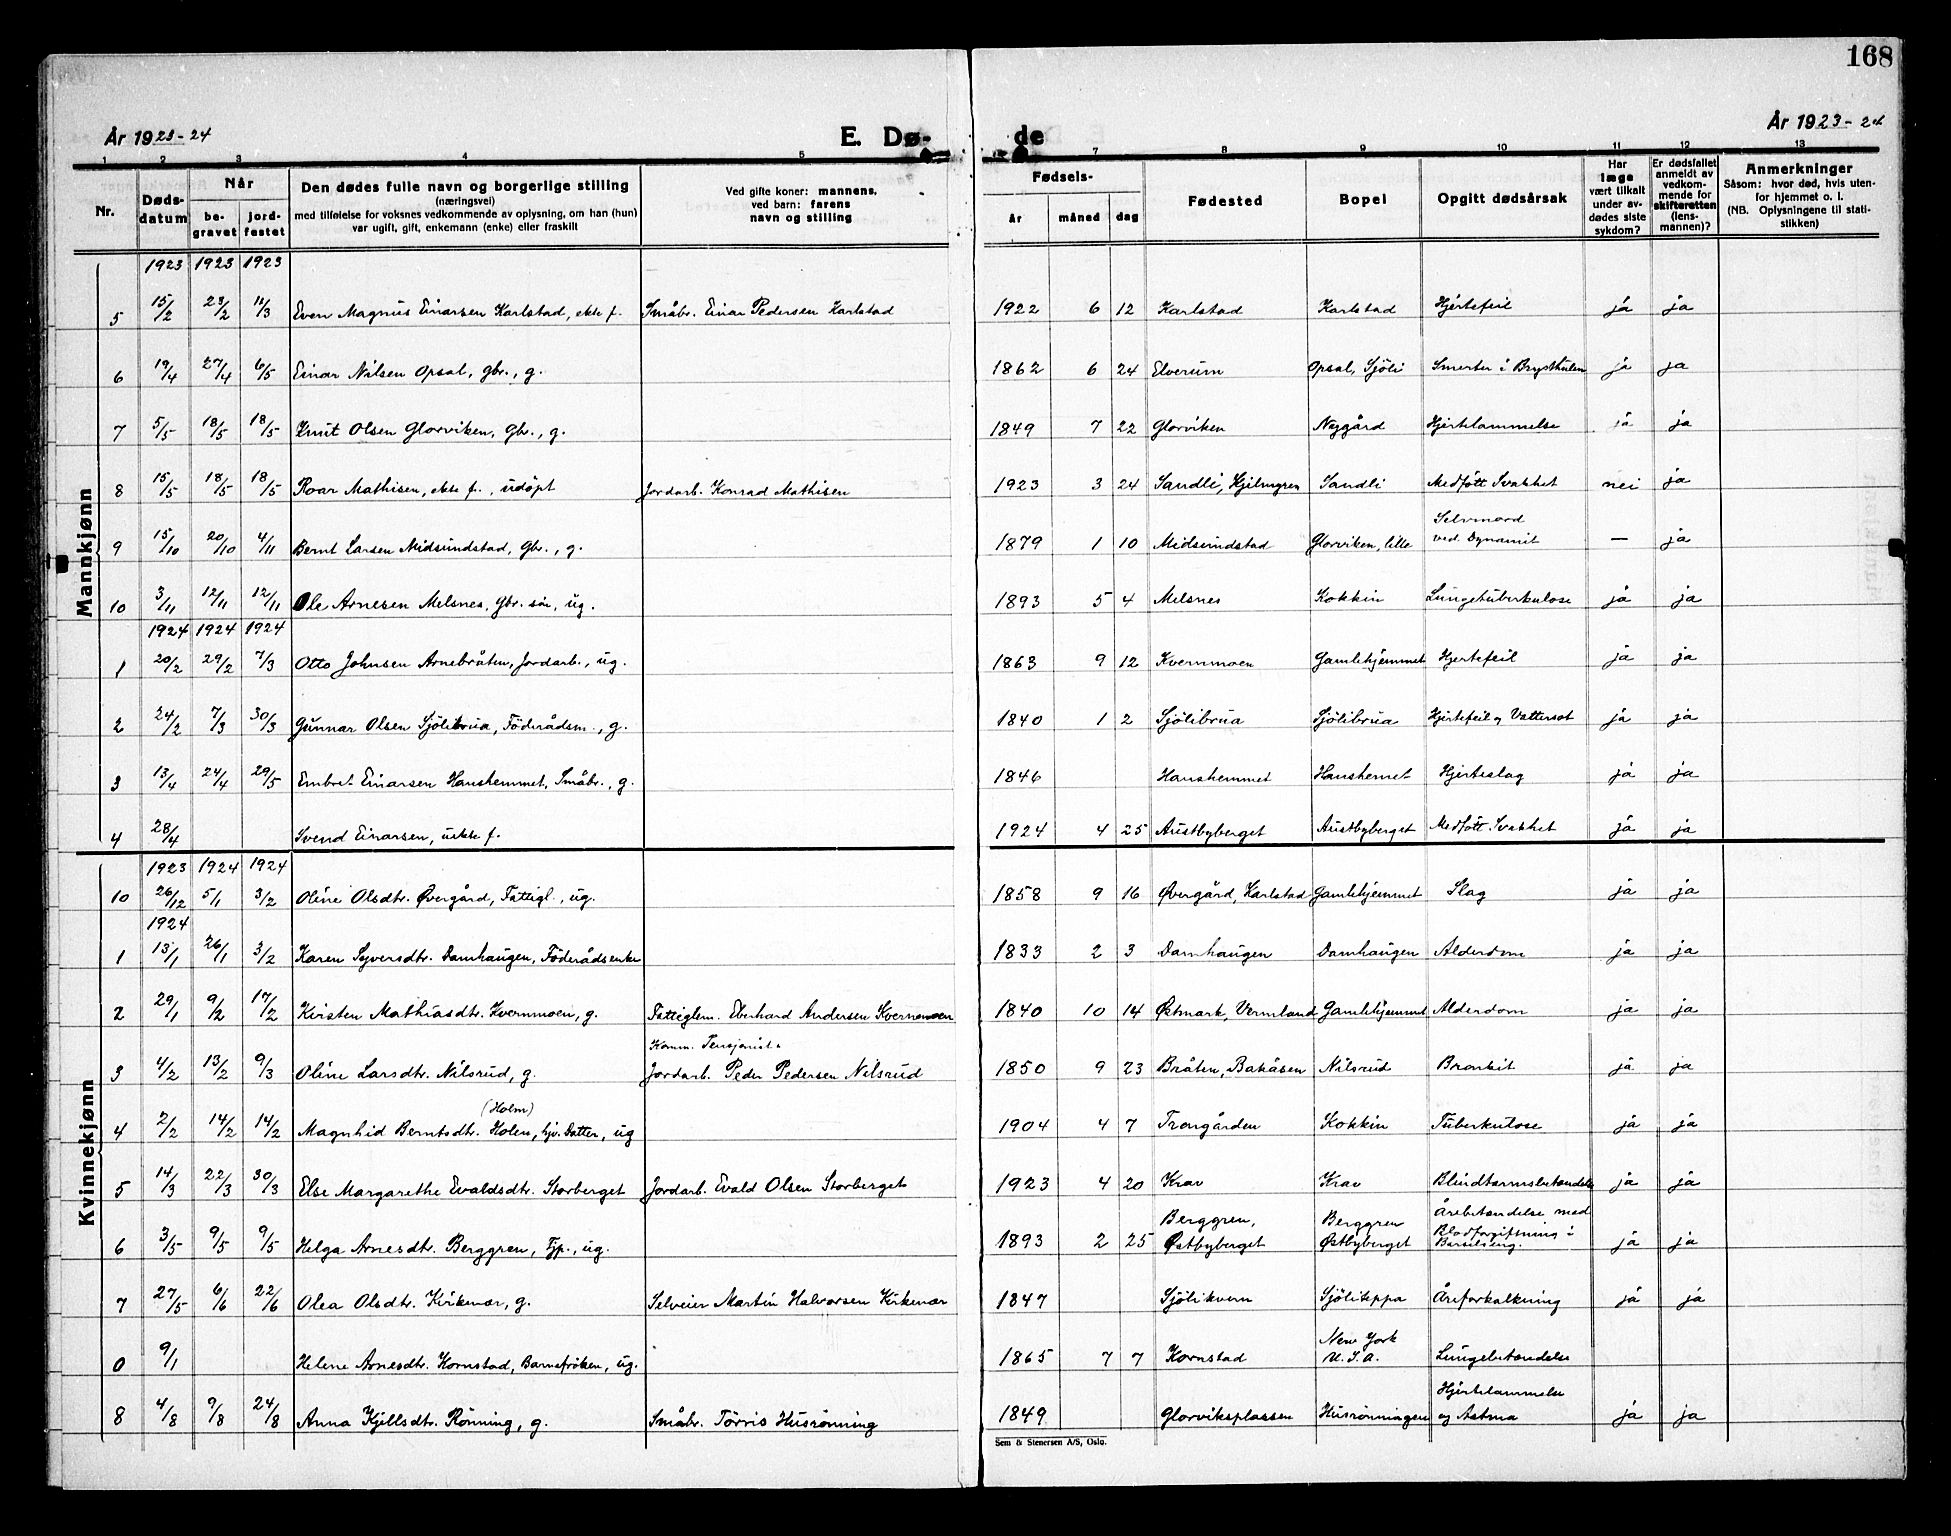 168
År 1923-24 E. Dø- de År 1923-24
1 2 3 4 5 7 8 9 10 11 12 13
Nr. Døds-datum Når be-gravet jord-festet Den dødes fulle navn og borgerlige stilling (næringsvei) med tilføielse for voksnes vedkommende av oplysning, om han (hun) var ugift, gift, enkemann (enke) eller fraskilt Ved gifte koner: mannens, ved barn: farens navn og stilling Fødsels- år måned dag Fødested Bopel Opgitt dødsårsak Har læge vært tilkalt under av-dødes siste sykdom? Er dødsfallet anmeldt av vedkom-mende for skifteretten (lens-mannen)? Anmerkninger Såsom: hvor død, hvis uten-for hjemmet o. l. (NB. Oplysningene til stati-stikken)
Mannkjønn
1923 1923 1923
5 15/2 23/2 11/3 Even Magnus Einarsen Karlstad, ekte f. Småbr. Einar Pedersen Karlstad 1922 6 12 Karlstad Karlstad Hjertefeil ja ja
6 19/4 27/4 6/5 Einar Nilsen Opsal, gbr., g. 1862 6 24 Elverum Opsal, Sjöli Smerter i Brysthulen ja ja
7 5/5 18/5 18/5 Knut Olsen Glorviken, Gbr., g. 1849 7 22 Glorviken Nygård Hjertelammelse ja ja
8 15/5 18/5 18/5 Roar Mathisen, ekte f., udöpt Jordarb. Konrad Mathisen 1923 3 24 Sandli, Hjelmgren Sandli Medfött Svakhet nei ja
9 15/10 20/10 4/11 Bernt Larsen Midsundstad, Gbr., g. 1879 1 10 Midsundstad Glorviken, lille Selvmord ved Dynamit — ja
10 3/11 12/11 12/11 Ole Arnesen Melsnes, Gbr. sön, ug. 1893 5 4 Melsnes Kokkin Lungetuberkulose ja ja
1924 1924 1924
1 20/2 29/2 7/3 Otto Johnsen Arnebråten, Jordarb., ug. 1863 9 12 Kvernmoen Gamlehjemmet Hjertefeil ja ja
2 24/2 7/3 30/3 Gunnar Olsen Sjölibrua, Föderådsm., g. 1840 1 2 Sjölibrua Sjölibrua Hjertefeil og Vattersot ja ja
3 13/4 24/4 29/5 Embret Einarsen Hanshemmet, Småbr., g. 1846 Hanshemmet Hanshemet Hjerteslag ja ja
4 28/4 Svend Einarsen, uekte f. 1924 4 25 Austbyberget Austbyberget Medfött Svakhet ja ja
Kvinnekjønn
1923 1924 1924
10 26/12 5/1 3/2 Oline Olsdtr. Øvergård, Fattigl., ug. 1858 9 16 Øvergård, Karlstad Gamlehjemmet Slag ja ja
1924
1 13/1 26/1 3/2 Karen Syversdtr. Damhaugen, Föderådsenke 1833 2 3 Damhaugen Damhaugen Alderdom ja ja
2 29/1 9/2 17/2 Kirsten Mathiasdtr. Kvernmoen, g. Fattiglem. Eberhard Andersen Kvernmoen 1840 10 14 Østmark, Vermland Gamlehjemmet Alderdom ja ja
3 4/2 13/2 9/3 Oline Larsdtr. Nilsrud, g. Komm. Pensjonist. Jordarb. Peder Pedersen Nilsrud 1850 9 23 Bråten, Bakåsen Nilsrud Bronkit ja ja
4 2/2 14/2 14/2 Magnhid Berntsdtr. Holen, (Holm) hjv. Datter, ug 1904 4 7 Trongården Kokkin Tuberkulose ja ja
5 14/3 22/3 30/3 Else Margarethe Evaldsdtr. Storberget Jordarb. Evald Olsen Storberget 1923 4 20 Krav Krav Blindtarmsbetændelse ja ja
6 3/5 9/5 9/5 Helga Arnesdtr. Berggren, Tjp., ug. 1893 2 25 Berggren, Østbyberget Berggren Østbyberget Årebetændelse med Blodforgiftning i Barselseng. ja ja
7 27/5 6/6 22/6 Olea Olsdtr. Kirkenær, g. Selveier Martin Halvorsen Kirkenær 1847 Sjölikvern Sjölikppa Åreforkalkning ja ja
0 9/1 Helene Arnesdtr. Kornstad, Barnefröken, ug. 1865 7 7 Kornstad New York U.S.A. Lungebetændelse
8 4/8 9/8 24/8 Anna Kjellsdtr. Rönning, g. Småbr. Törris Husrønning 1849 Glorviksplassen Husrønningen Hjertelammelse og Astma ja ja
Sem & Stenersen A/S, Oslo.